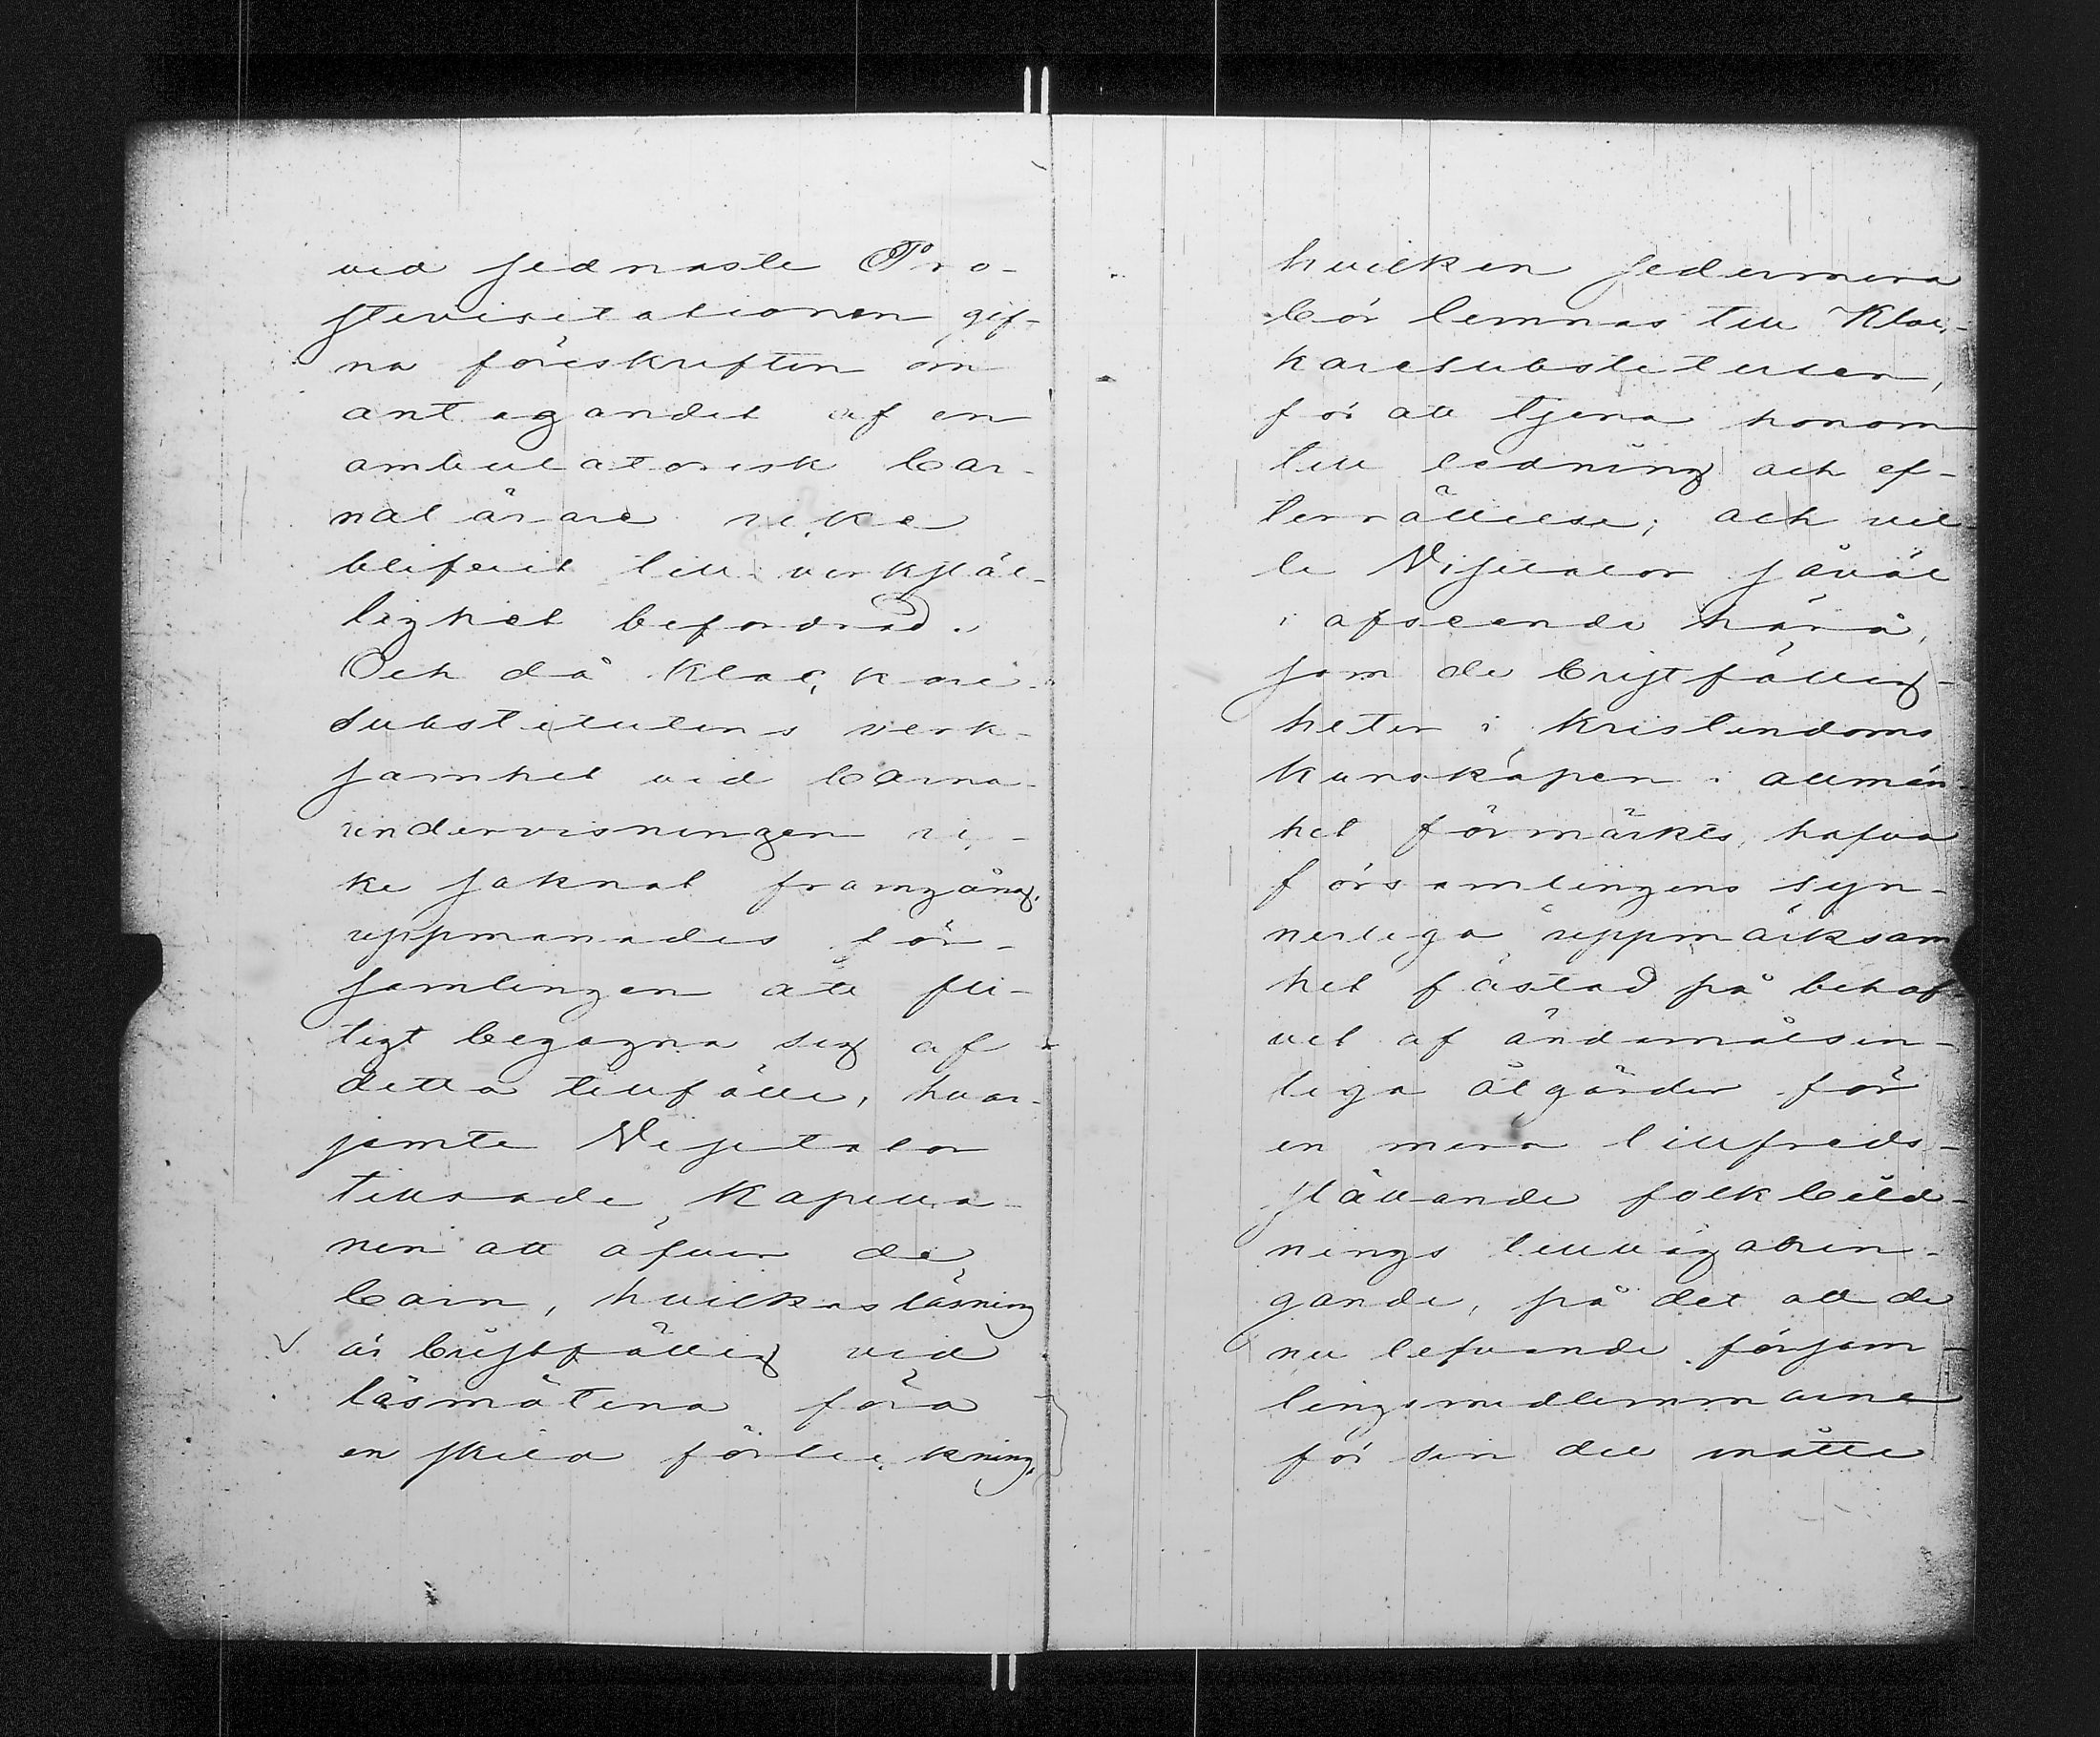 vid sednaste Pro-
stevisitationen gif-
na föreskriften om
antagandet af en
ambulatorisk bar-
nalärare icke
blifvit till verkstäl-
lighet befordrad.
Och då klockare-
substitutens verk-
samhet vid barna-
undervisningen ic-
ke saknat framgång,
uppmanades för-
samlingen att fli-
tigt begagna sig af
detta tillfälle, hvar-
jemte Visitator
tillsade Kapella-
nen att öfver de
barn, hvilkas läsning
är bristfällig vid
läsmötena föra
en skild förteckning,
hvilken sedermera
bör lemnas till Kloc-
karesubstituten,
för att tjena honom
till ledning och ef-
terrättelse; och vil-
le Visitator såväl
i afseende härå,
som de bristfällig-
heter i kristendoms
kunskapen i allmän-
het förmärkts, hafva
församlingens syn-
nerliga uppmärksam
het fästad på behof-
vet af ändamålsen-
liga åtgärder för
en mera tillfreds-
ställande folkbild-
nings tillvägabrin-
gande, på det att de
nu lefvande försam-
lingsmedlemmarne
för sin del måtte